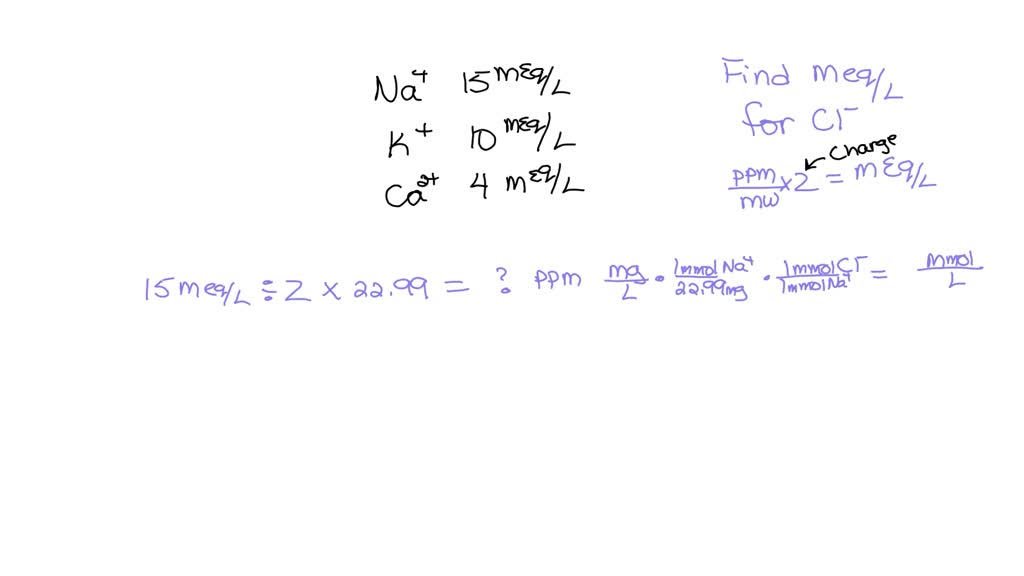 Na⁺ 15 mEq/L
K⁺ 10 mEq/L
Ca²⁺ 4 mEq/L
Find meq/L
for Cl⁻
Charge
ppm/mw × Z = mEq/L
15 meq/L ÷ Z × 22.99 = ? ppm mg/L • 1mmol Na⁺/22.99mg • 1mmol Cl⁻/1mmol Na⁺ = mmol/L